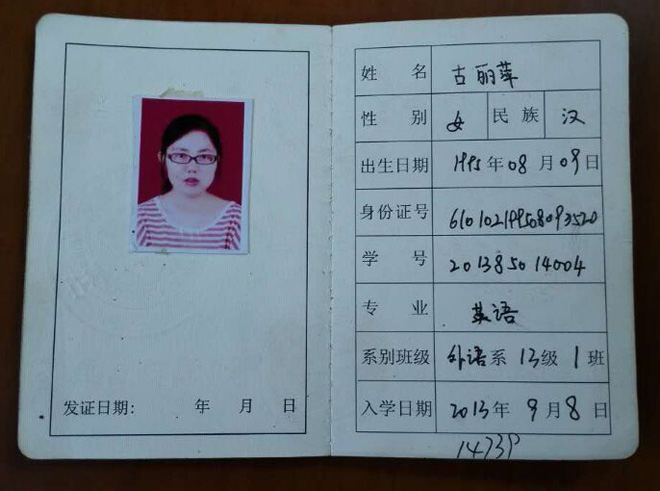 发证日期： 年 月 日
姓名 古丽萍
性别 女 民族 汉
出生日期 1995年08月09日
身份证号 610102199508093520
学号 201385014004
专业 英语
系别班级 外语系 13级 1班
入学日期 2013年 9月 8日